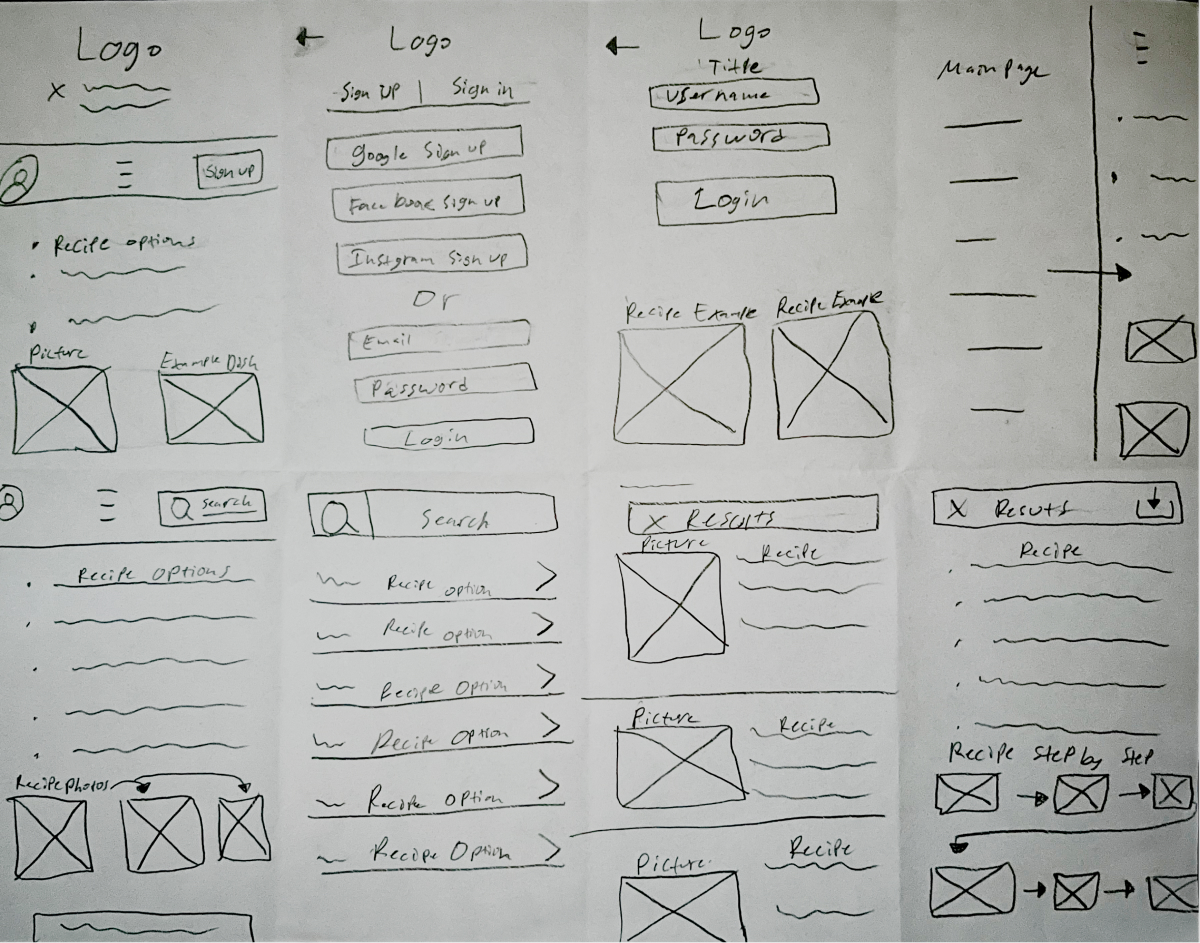 Logo
X
Sign up
Recipe options
Picture
Example Dish
Logo
Sign UP | Sign in
google Sign up
Facebook Sign up
Instgram Sign up
Or
Email
Password
Login
Logo
Title
Username
Password
Login
Recipe Example
Recipe Example
Main Page
Search
Recipe Options
Recipe photos
Search
Recipe option
Recipe option
Recipe Option
Recipe Option
Recipe Option
Recipe Option
X Resuts
Picture
Recipe
Picture
Recipe
Picture
Recipe
X Resuts
Recipe
Recipe Step by Step